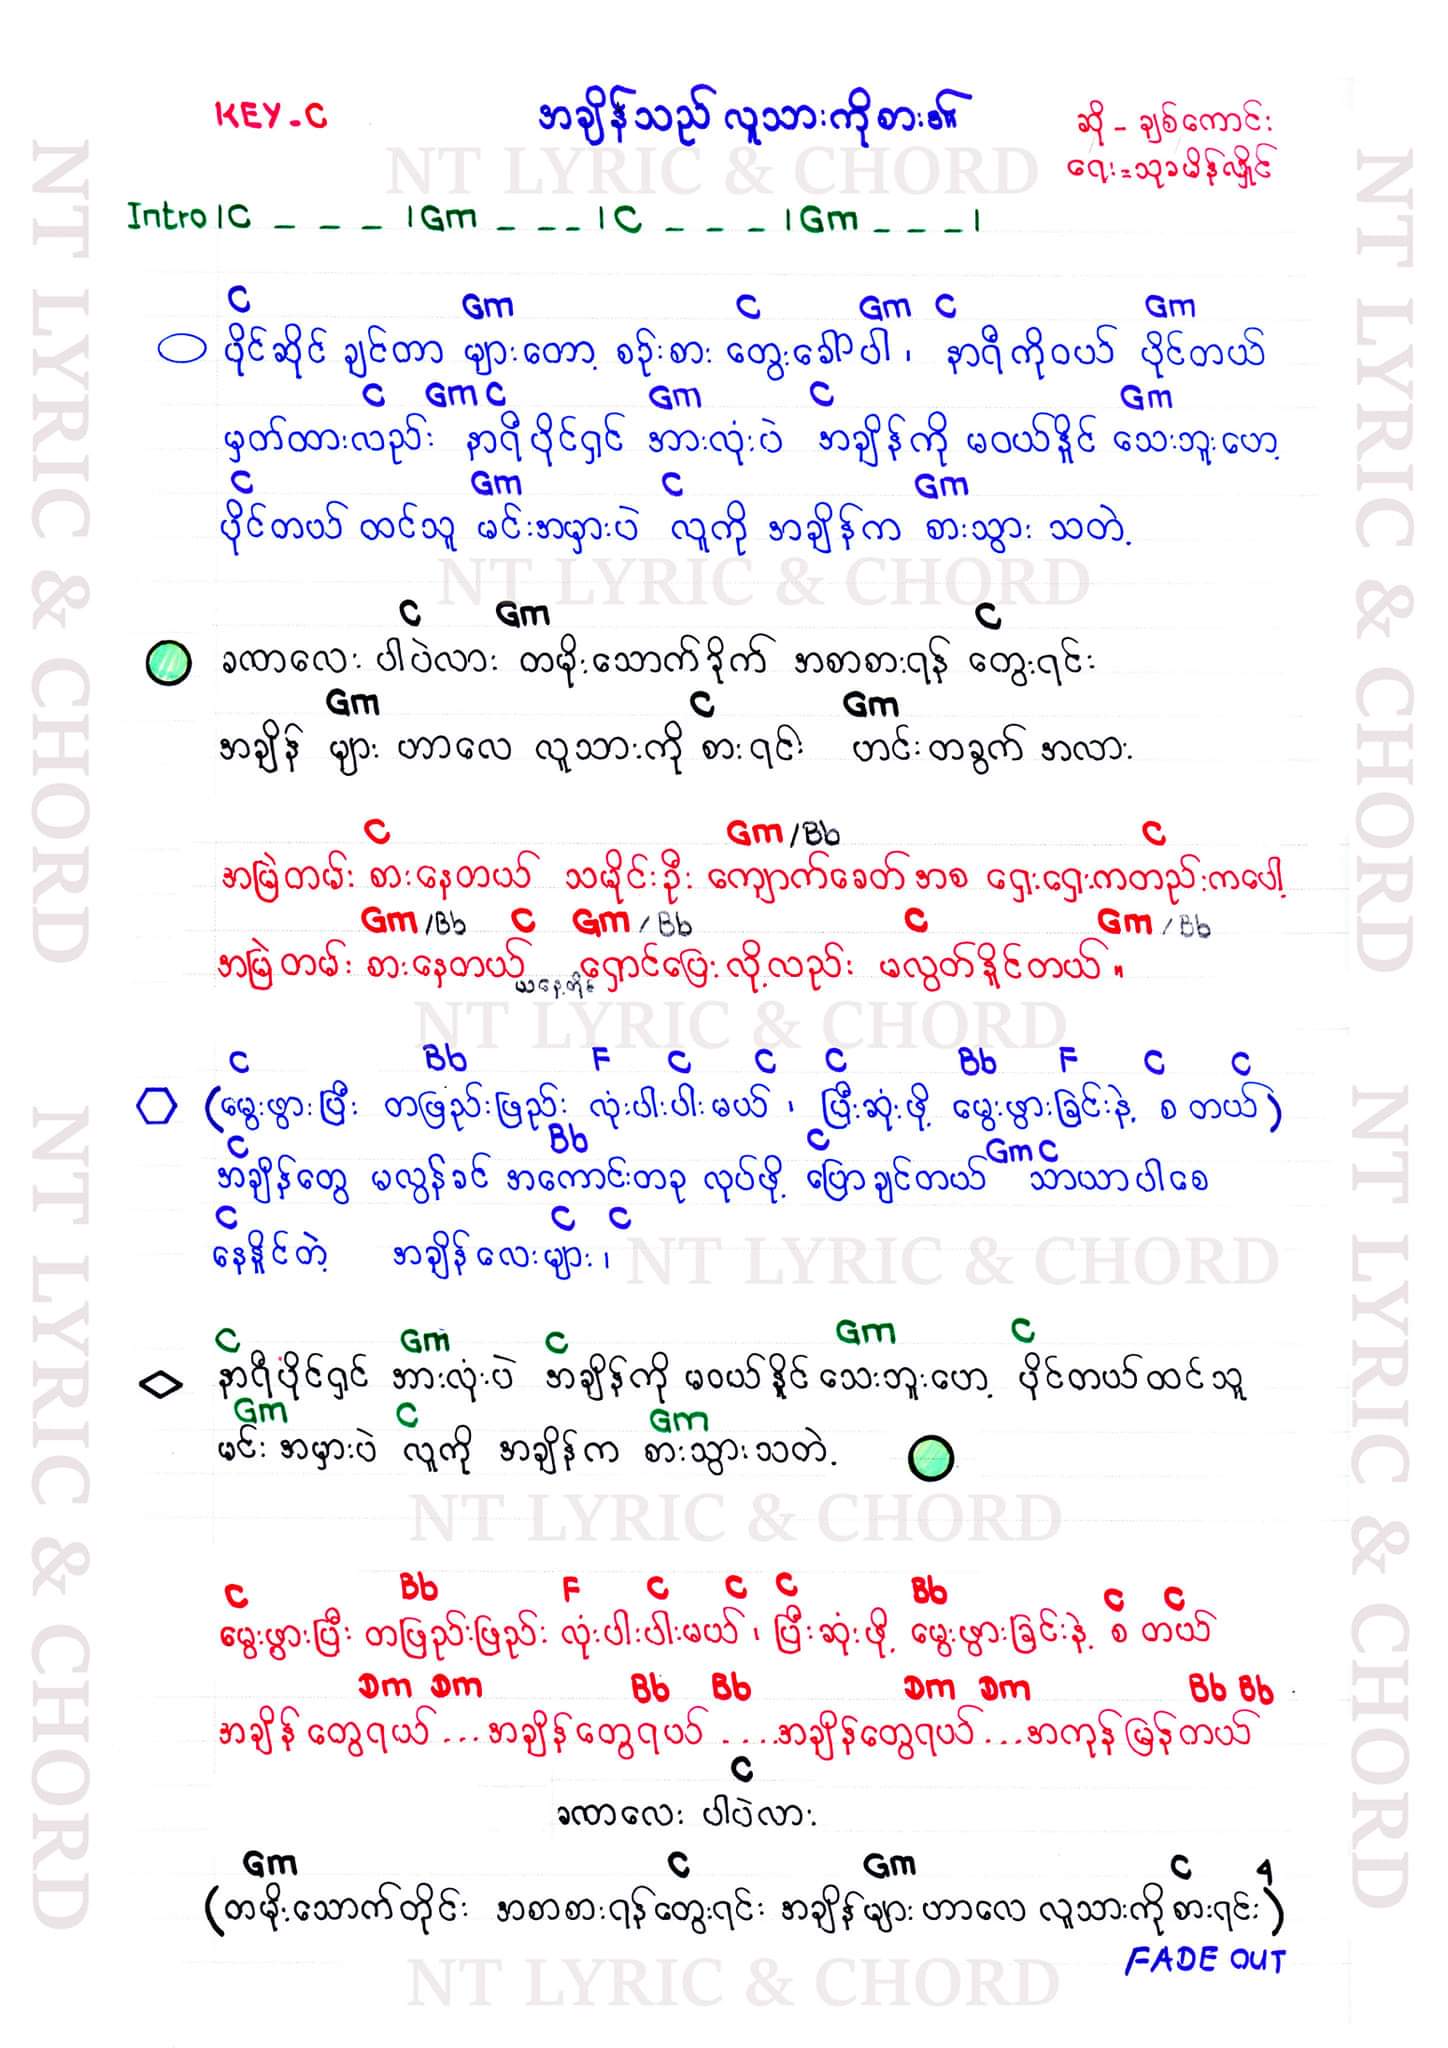 KEY-C
အချိန်သည် လူသားကိုစား၏
ဆို - ချစ်ကောင်း
ရေး = သုခမိန်လှိုင်
NT LYRIC & CHORD
Intro | C _ _ _ | Gm _ _ _ | C _ _ _ | Gm _ _ _ |
C Gm C Gm C Gm
ပိုင်ဆိုင် ချင်တာ များတော့ စဉ်းစား တွေးခေါ်ပါ ၊ နာရီကိုဝယ် ပိုင်တယ်
C Gm C Gm C Gm
မှတ်ထားလည်း နာရီပိုင်ရှင် အားလုံးပဲ အချိန်ကို မဝယ်နိူင် သေးဘူးဟေ့
C Gm C Gm
ပိုင်တယ် ထင်သူ မင်းအမှားပဲ လူကို အချိန်က စားသွား သတဲ့
NT LYRIC & CHORD
C Gm C
ခဏလေး ပါပဲလား တမိုးသောက် အစာစားရန် တွေးရင်း
Gm C Gm
အချိန် များ ဟာလေ လူသားကို စားရင်း ဟင်းတခွက် အလား
C Gm/Bb C
အမြဲတမ်း စားနေတယ် သမိုင်းဦး ကျောက်ခေတ်အစ ရှေးရှေးကတည်းကပေါ့
Gm/Bb C Gm/Bb C Gm/Bb
အမြဲတမ်း စားနေတယ် ယနေ့တိုင် ရှောင်ပြေးလို့လည်း မလွတ်နိူင်တယ် ။
NT LYRIC & CHORD
C Bb F C C C Bb F C C
(မွေးဖွားပြီး တဖြည်းဖြည်း လုံးပါးပါးမယ် ၊ ပြီးဆုံးဖို့ မွေးဖွားခြင်းနဲ့ စ တယ်)
C Bb C Gm C
အချိန်တွေ မလွန်ခင် အကောင်းတခု လုပ်ဖို့ ပြောချင်တယ် သာယာပါစေ
C C C
နေနိူင်တဲ့ အချိန်လေးများ ၊
NT LYRIC & CHORD
C Gm C Gm C
နာရီပိုင်ရှင် အားလုံးပဲ အချိန်ကို မဝယ်နိူင် သေးဘူးဟေ့ ပိုင်တယ်ထင်သူ
Gm C Gm
မင်းအမှားပဲ လူကို အချိန်က စားသွားသတဲ့
NT LYRIC & CHORD
C Bb F C C C Bb C C
မွေးဖွားပြီး တဖြည်းဖြည်း လုံးပါးပါးမယ် ၊ ပြီးဆုံးဖို့ မွေးဖွားခြင်းနဲ့ စ တယ်
Dm Dm Bb Bb Dm Dm Bb Bb
အချိန်တွေရယ် ... အချိန်တွေရယ် .... အချိန်တွေရယ် ... အကုန်မြန်တယ်
C
ခဏလေး ပါပဲလား
Gm C Gm C 4
(တမိုးသောက်တိုင်း အစာစားရန်တွေးရင်း အချိန်များ ဟာလေ လူသားကို စားရင်း)
FADE OUT
NT LYRIC & CHORD
NT LYRIC & CHORD
NT LYRIC & CHORD
NT LYRIC & CHORD
NT LYRIC & CHORD